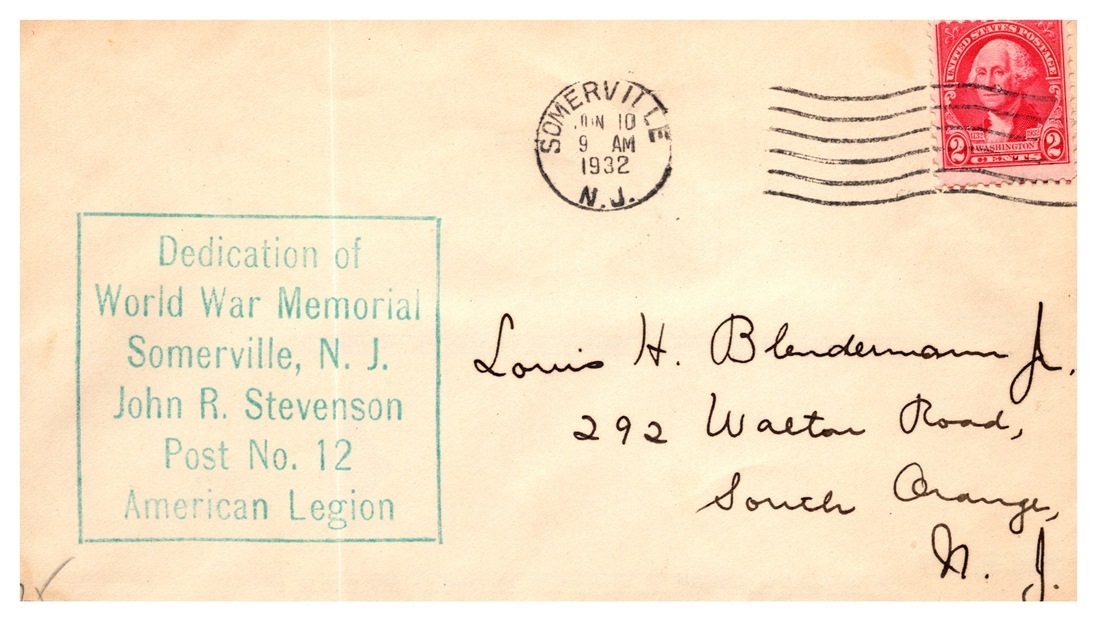 UNITED STATES POSTAGE
1732 1932
WASHINGTON
2 CENTS 2
SOMERVILLE
JUN 10
9 AM
1932
N.J.
Dedication of
World War Memorial
Somerville, N. J.
John R. Stevenson
Post No. 12
American Legion
Louis H. Blendermann Jr.
292 Walton Road,
South Orange,
N. J.